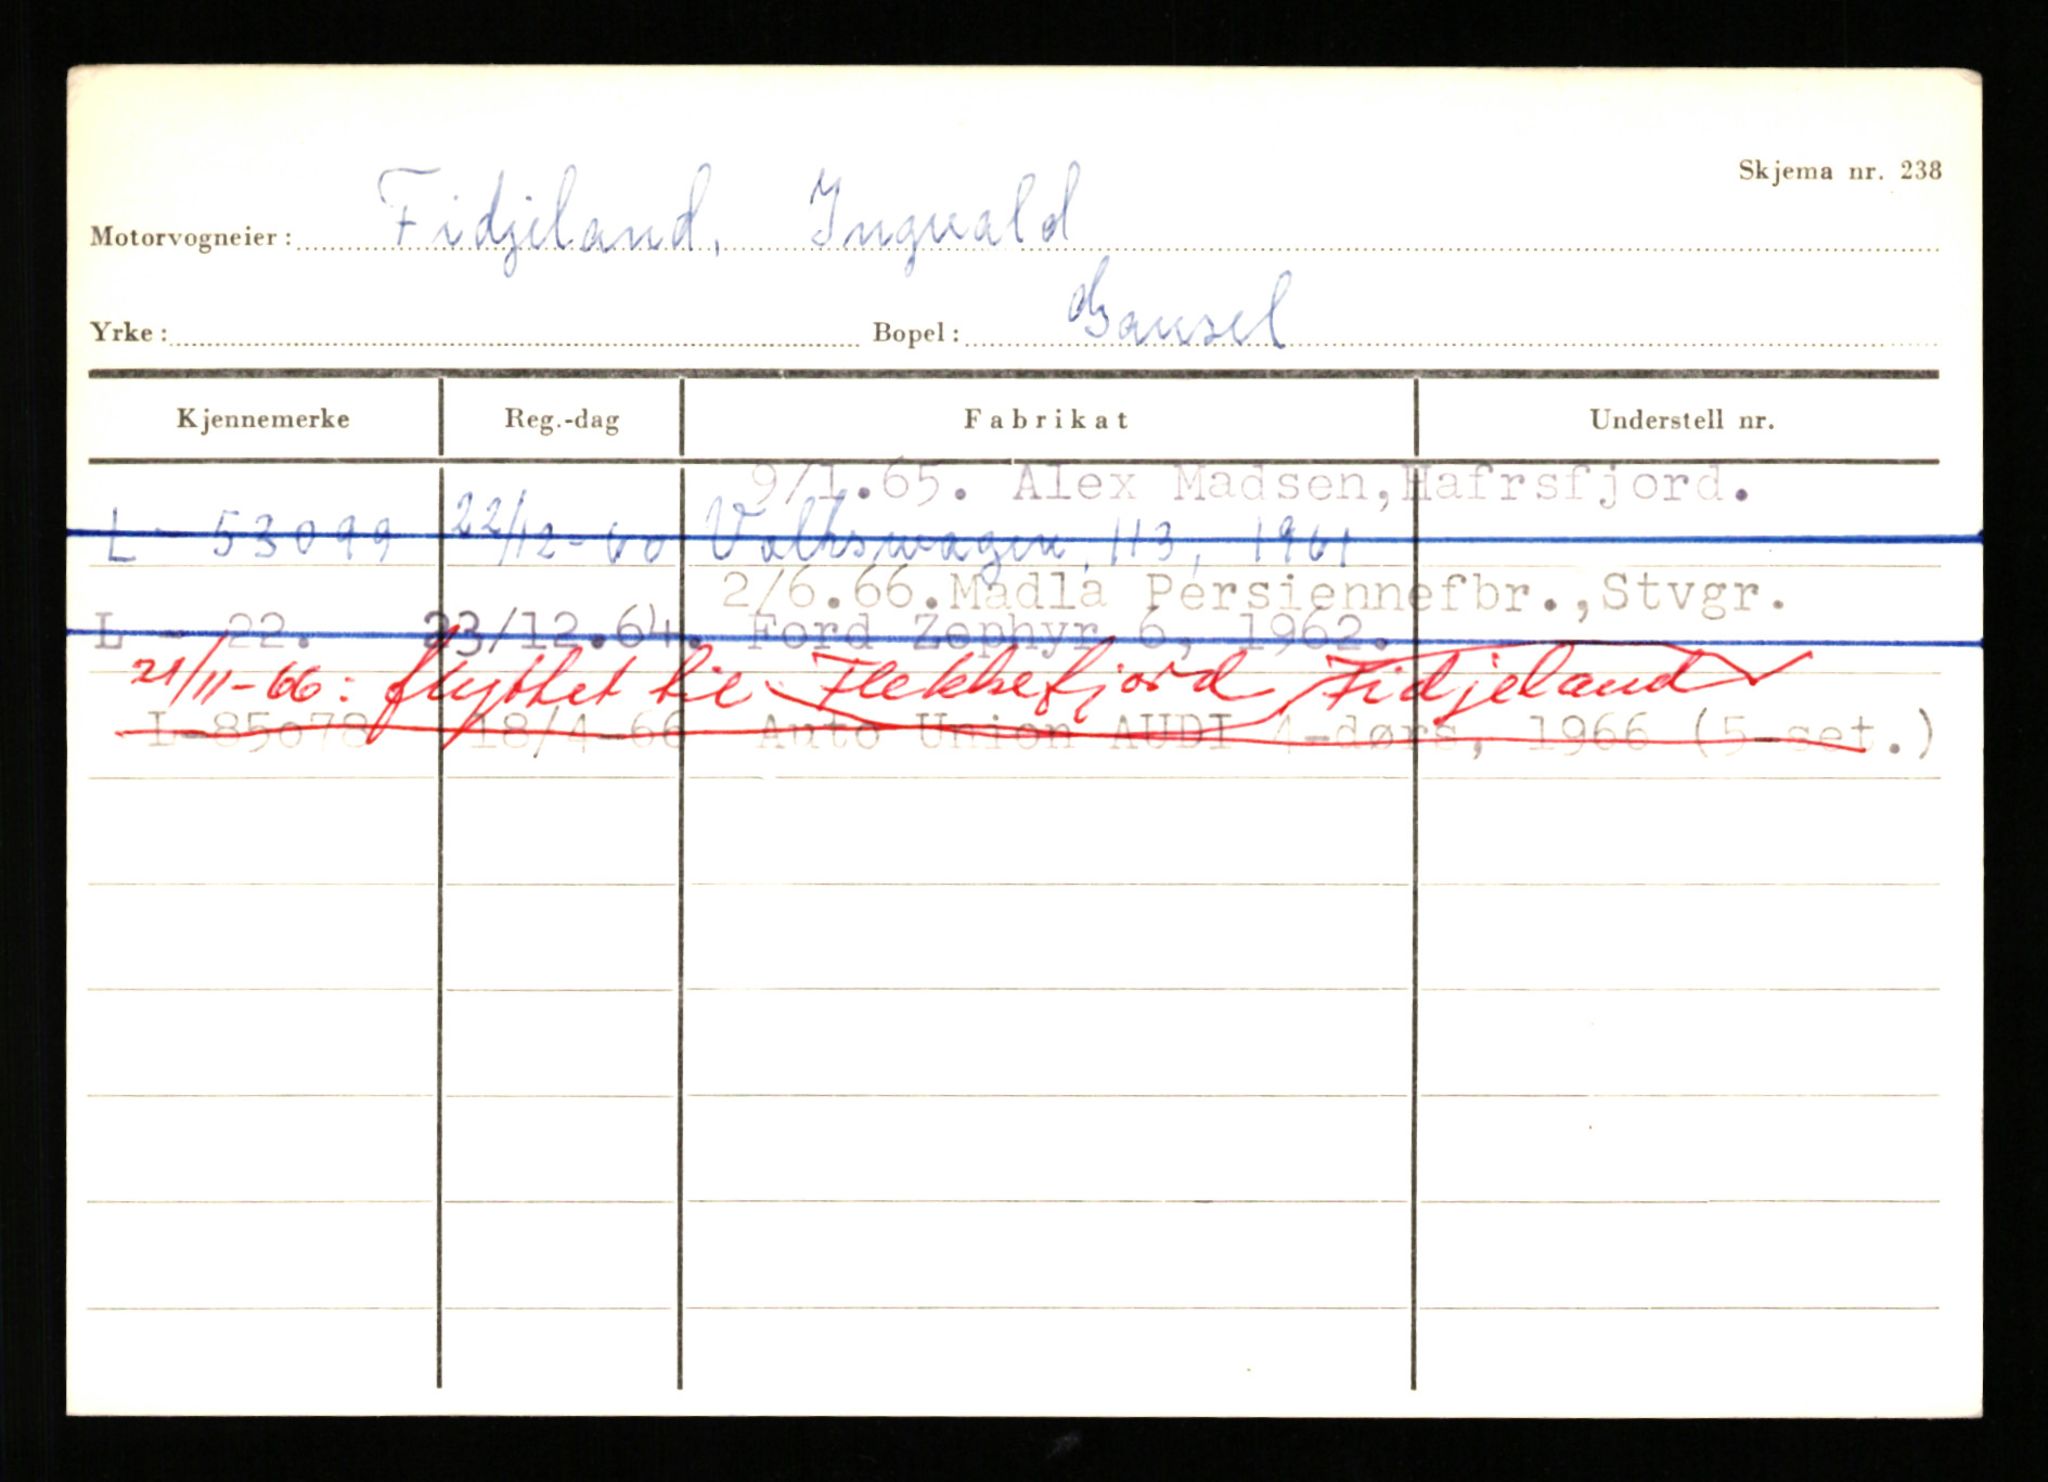 Skjema nr. 238
Motorvogneier: Fidjeland, Ingvald
Yrke: Bopel: Gausel
Kjennemerke Reg.-dag Fabrikat Understell nr.
9/1.65. Alex Madsen, Hafrsfjord.
L - 53099 22/12-60 Volkswagen 113, 1961
2/6.66. Madla Persiennefbr., Stvgr.
L - 22. 23/12.64. Ford Zephyr 6, 1962.
21/11-66: flyttet til Flekkefjord, Fidjeland
L-85078 18/4-66 Auto Union AUDI 4-dørs, 1966 (5-set.)